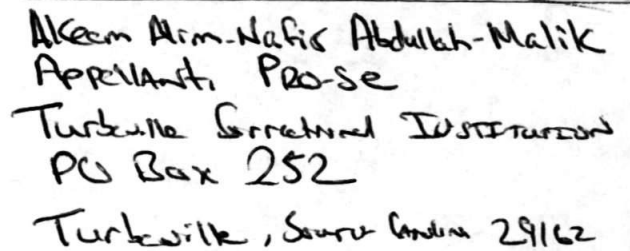 Akeem Alim-Nafis Abdullah-Malik
Appellant, Pro-se
Turbeville Correctional Institution
PO Box 252
Turbeville, South Carolina 29162